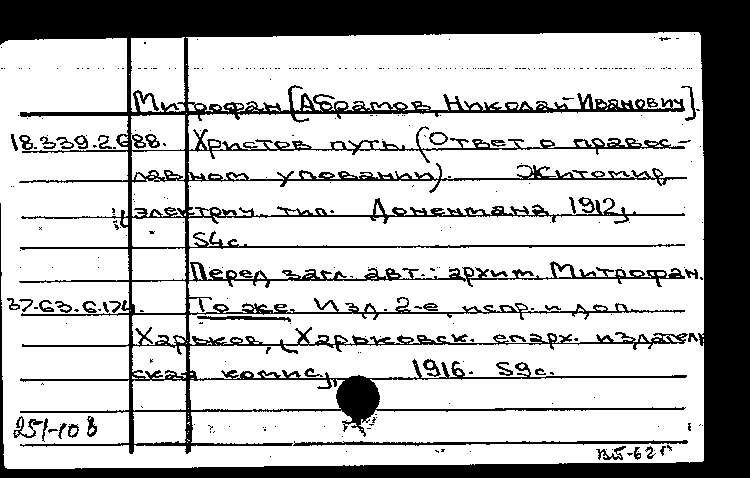 Митрофан [Абрамов, Николай Иванович].
18.339.2.688. Христов путь. (Ответ о правос-
лавном уповании). Житомир,
электрич. тип. Доненмана, 1912].
54 с.
Перед загл. авт.: архим. Митрофан.
37-63.6.174. То же. Изд. 2-е, испр. и доп.
Харьков, [Харьковск. епарх. издатель
ская комис], 1916. 59 с.
251-10 в